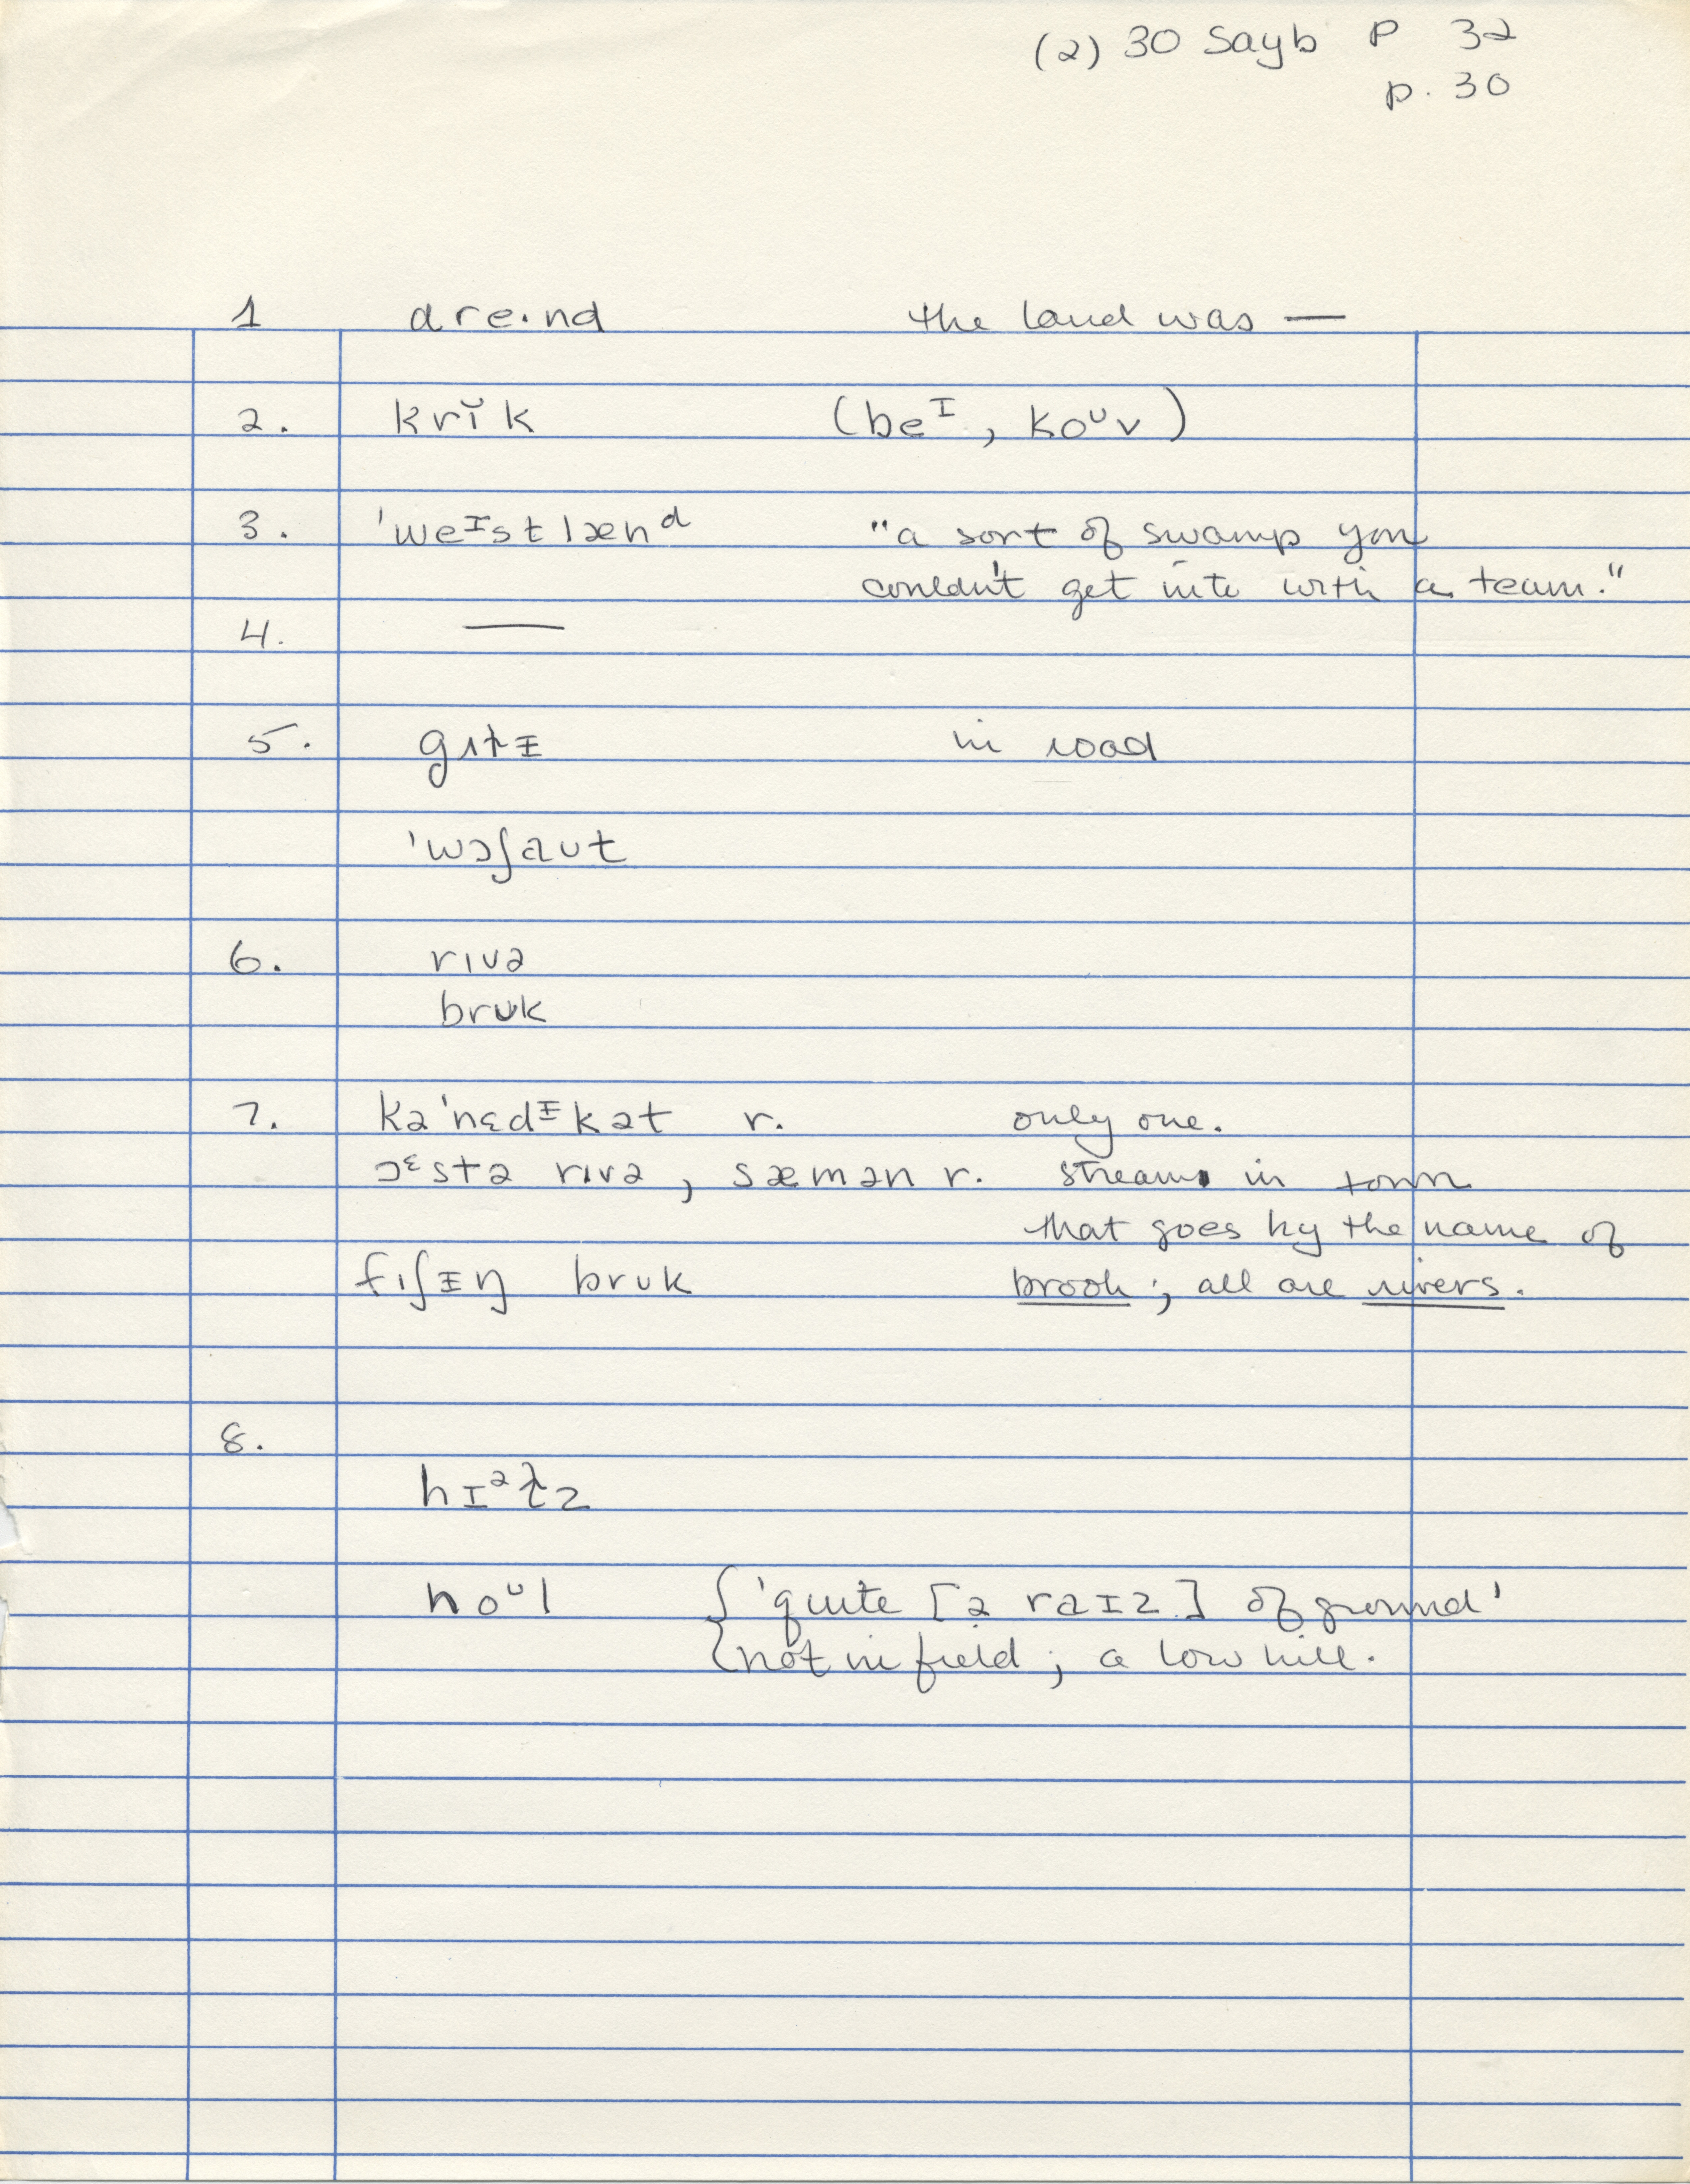 (2) 30 Sayb P 32
p. 30
1 dre·nd the land was —
2. krĭk (beᴵ, koᵘv)
3. 'weᴵstlænᵈ "a sort of swamp you
couldn't get into with a team."
4. —
5. in road
'wɔʃaut
6. rɪvə
brʊk
7. kə'nɛdᵻkət r. only one.
ɔᵋstə rɪvə, sæmən r. streams in town
that goes by the name of
fɪʃɪŋ brʊk brook; all are rivers.
8.
hɪᵊɫz
noᵘl {'quite [ə raɪz] of ground'
not in field; a low hill.